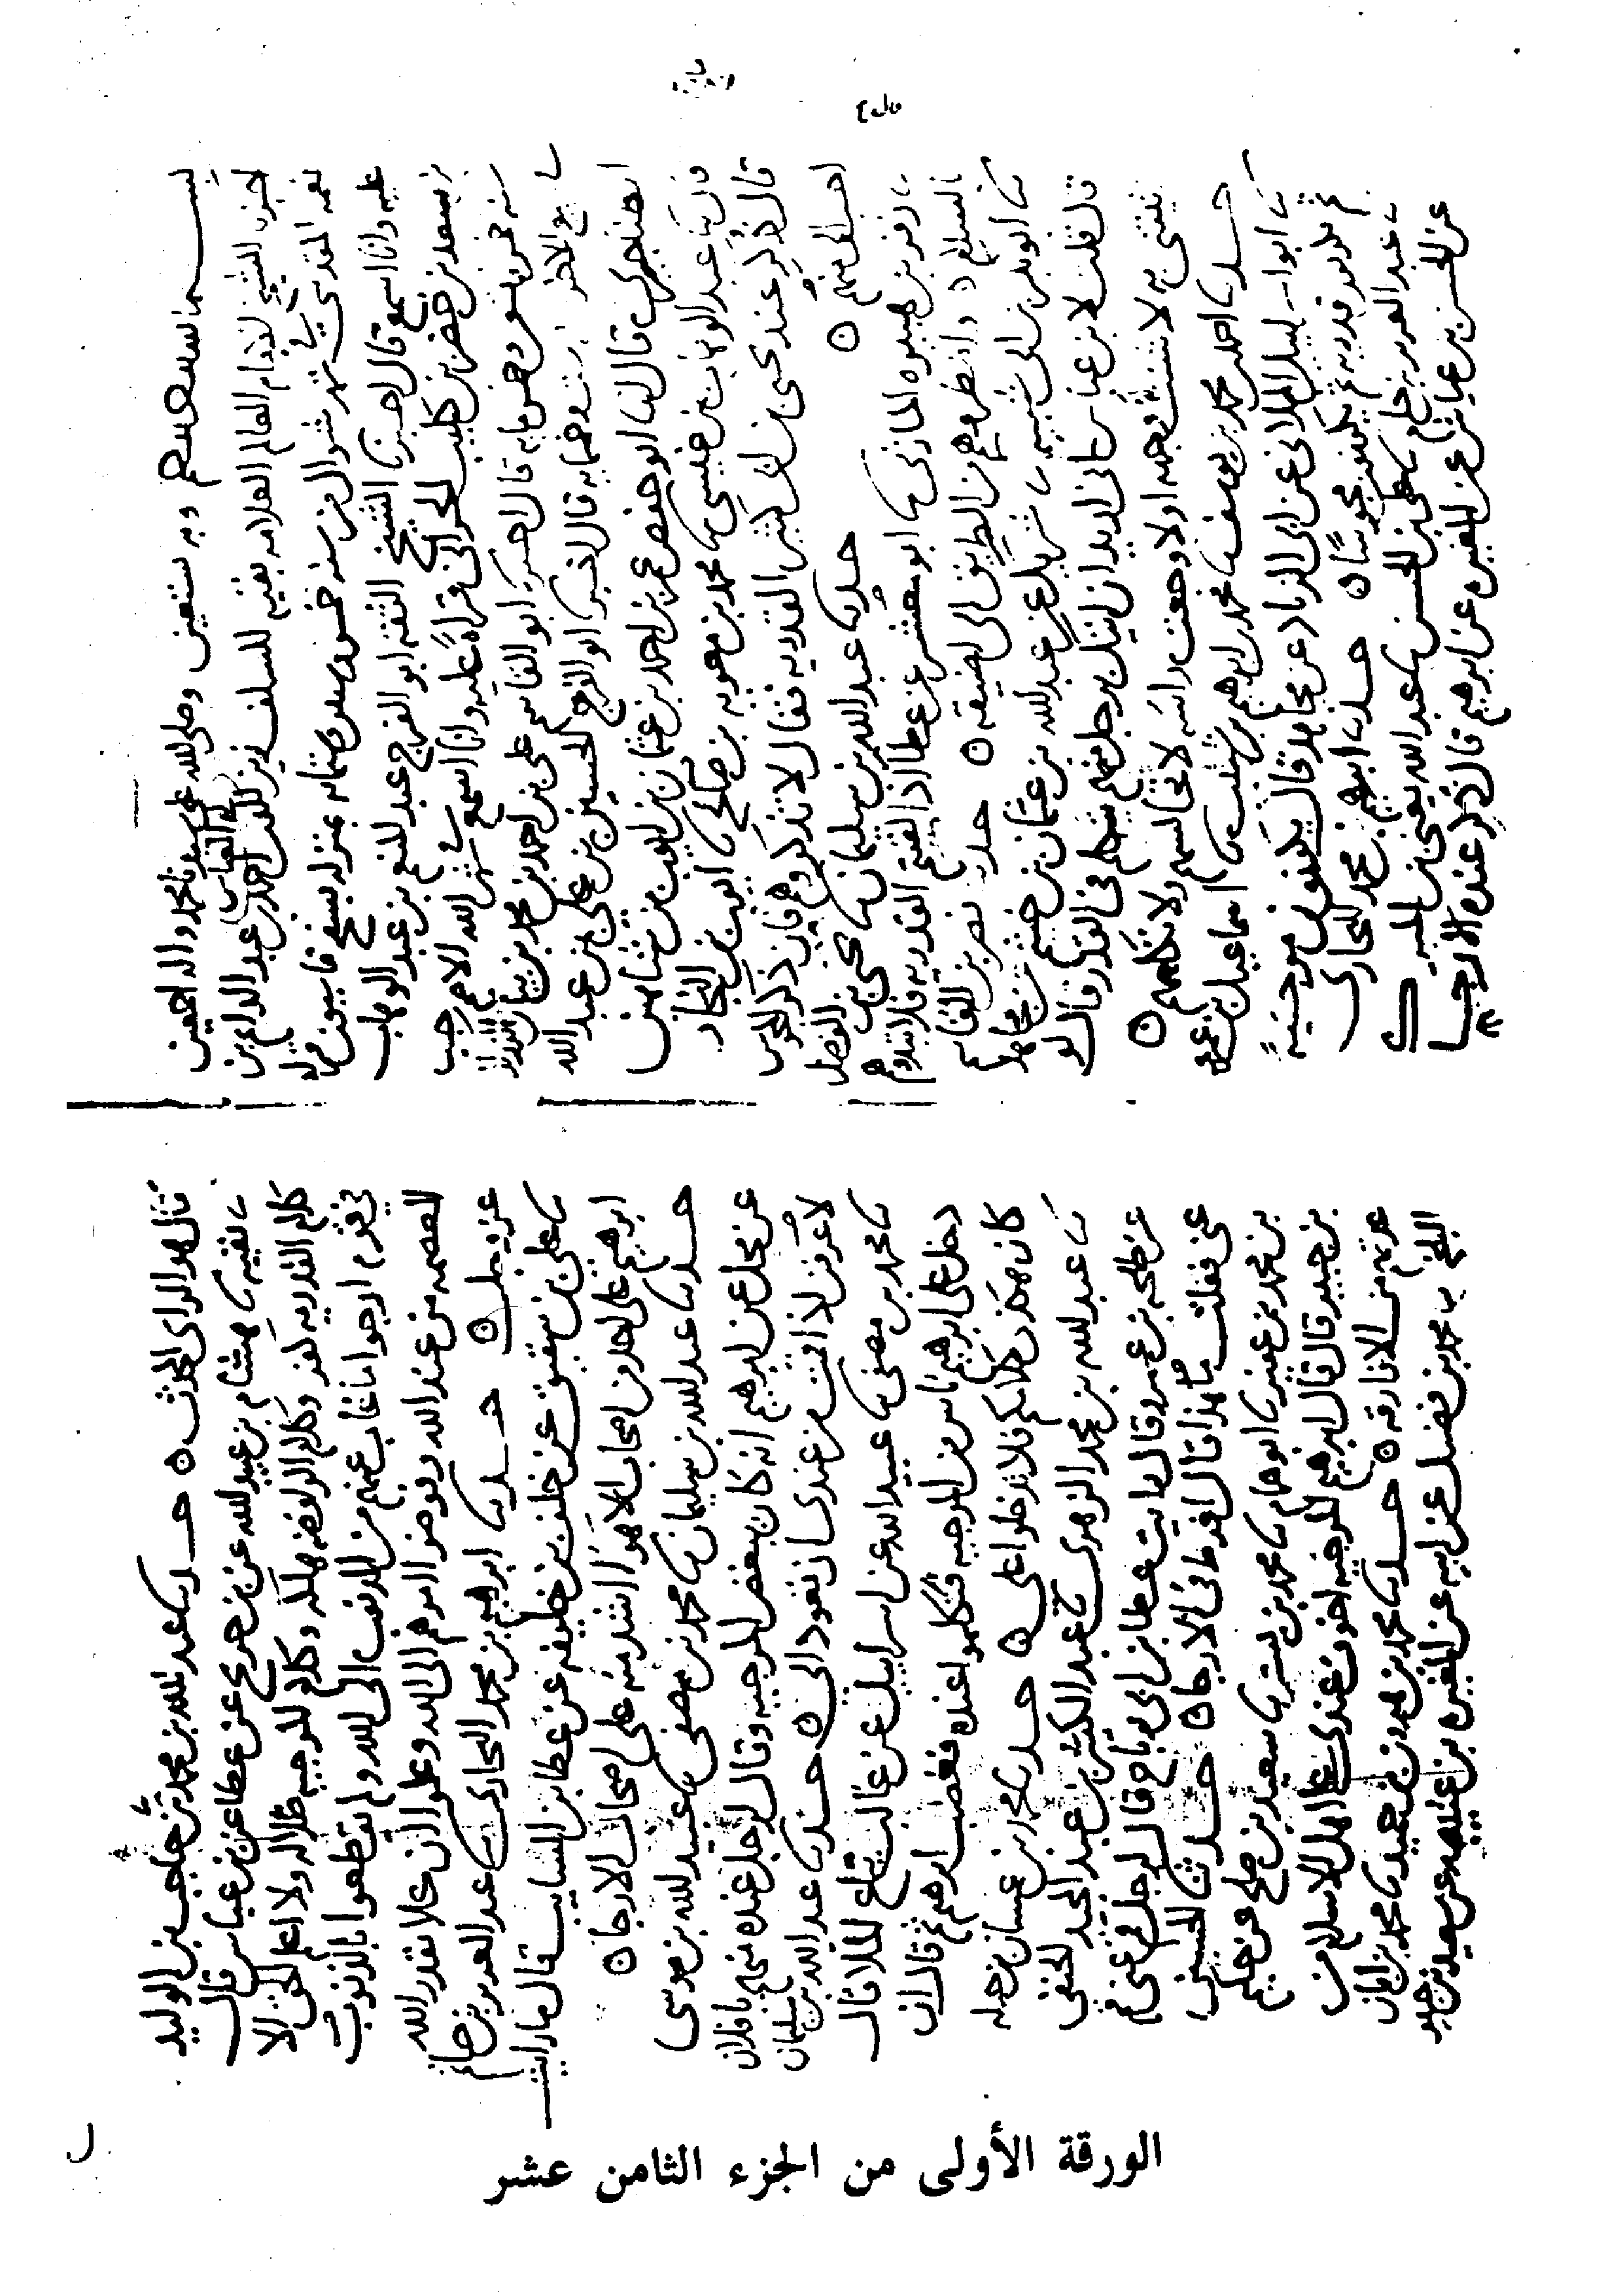 بسم الله الرحمن الرحيم وبه نستعين وصلى الله على سيدنا محمد واله اجمعين
اخبرنا الشيخ الامام العالم العلامه بقيه السلف زين الدين ابو العباس احمد بن عبد الدايم بن
نعمه المقدسي في شهر شوال من سنه خمس وستمايه بمنزله بسفح قاسيون قراه
عليه وانا اسمع قال اخبرنا الشيخ الثقه ابو الفرج عبد المنعم بن عبد الوهاب
بن سعد بن خضر بن كليب الحراني قراة عليه وانا اسمع في شهر الله الاصم رجب
سنه خمس وخمس مايه قال اخبرنا ابو القاسم علي بن احمد بن محمد بن بيان الرزاز
في ربيع الاخر وخمسمايه قال اخبرنا ابو الفرج الحسين بن علي بن عبد الله
الطناجيري قال انا ابو حفص عمر بن احمد بن عثمان بن ايوب بن شاهين
قال نا عبد الوهاب بن عيسى نا محمد بن معويه بن صالح نا ايوب بن النجار
قال ذكر عند يحيى بن ابي كثير القدريه فقال لا تذكروهم فان ذكر المجوس
احب الي منهم ه حدثنا عبد الله بن سليمان نا يحيى بن الفضل
نا زفر بن هبيره المازني نا ابو معشر عن عطا اذا لقيتم القدريه فلا تبدوهم
بالسلام واضطروهم من الطريق الى اضيقه ه حدثنا نصر بن القاسم
نا ابو بكر بن ابي شيبه نا شريك عن عبد الله بن عثمان بن خثيم عن مجاهد
قال قلت لابن عباس اني اريد ان اتيك برجل منهم يتكلم في القدر قال لو
به وجهه اولاوجعت راسه لا تجالسهم ولا تكلمهم ه
حدثنا احمد بن محمد بن يوسف نا محمد بن ابرهيم بن شبيب نا اسماعيل بن عمرو
نا ابو الملائي عن ابي الزناد عن مجاهد قال يكونون مرجيه
ثم يكونون قدريه ثم يكونون مجوسا ه حدثنا ابرهيم بن محمد البخاري
نا عبد العزيز بن حاتم نا علي بن الحسن نا عبد الله يعني بن المبارك
عن الحسن بن عياش عن المغيره عن ابرهيم قال ذكر عنده الارجا
قال هو الراى المحدث ه حدثنا عبد الله بن محمد نا حاجب بن الوليد
نا بقيه نا هشام بن عبيد الله عن بن جريج عن عطا عن بن عباس قال
كلام القدريه كفر وكلام الرافضه هلكه وكلام المرجيه ضلاله ولا اعلم الحق الا
في قوم ارجوا ما غاب عنهم من الذنوب الى الله ولم يقطعوا بالذنوب
العصمه من عند الله وفوضوا امرهم الى الله وعلموا ان كلا بقدر الله
عز وجل ه حدثنا ابرهيم بن محمد البخاري نا عبد العزيز بن حاتم
نا علي بن شقيق عن خلف بن خليفه عن عطا بن السايب قال ما رايت
ابرهيم على احد من اصحاب الاهوا اشد منه على اصحاب الارجا ه
حدثنا عبد الله بن سليمان نا محمد بن مصفى نا عبيد الله بن موسى
عن محل عن ابرهيم انه كان يبغض المرجيه وقال لرجل عنده منهم يا فلان
لا عرفن اذا قمت من عندي ان تعود الي ه حدثنا عبد الله بن سليمان
نا محمد بن مصفى نا عبيد الله عن اسرايل عن غالب قال
دخل على ابرهيم ناس من المرجيه فتكلموا عنده فغضب ابرهيم ثم قال ان
كان هذا كلامكم فلا تدخلوا علي ه حدثنا محمد بن غسان بن جبله
نا عبد الله بن محمد الزهري نا عبد الكبير بن عبد المجيد الحنفي
عن طلحه بن عمرو قال رايت عطا بن ابي رباح قال لرجل قم عني قم
عني فقلت ما هذا قال افرط في الارجا ه حدثنا الحسين
بن محمد بن عفير نا ابو همام نا محمد بن بشر نا سعيد بن صالح عن حكيم
بن جبير قال قال ابرهيم المرجيه اخوف عندي على اهل الاسلام من
عدتهم من الازارقه ه حدثنا محمد بن هرون بن حميد نا محمد بن ابان
البلخي نا محمد بن فضيل عن ابيه عن المغيره بن عتيبه عن سعيد بن جبير
الورقة الأولى من الجزء الثامن عشر